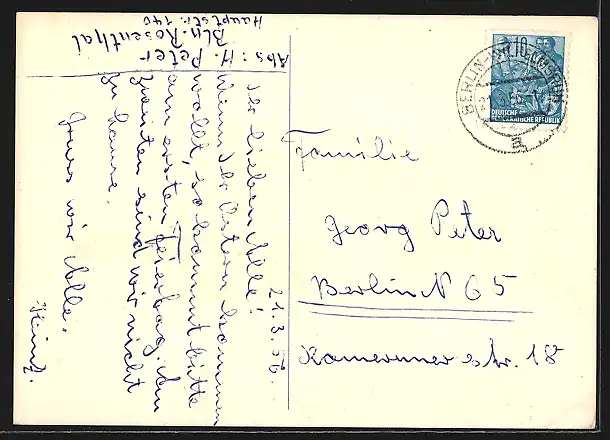 Abs: H. Peter
Bln. Rosenthal
Hauptstr. 140
21.3.56.
Ihr lieben Alle!
Wenn Ihr Ostern kommen
wollt, so kommt bitte
am ersten Feiertag. Am
zweiten sind wir nicht
zu hause.
Gruss wir Alle.
Heinz.
10
DEUTSCHE
DEMOKRATISCHE REPUBLIK
BERLIN
a
Familie
Georg Peter
Berlin N 65
Kameruner str. 18